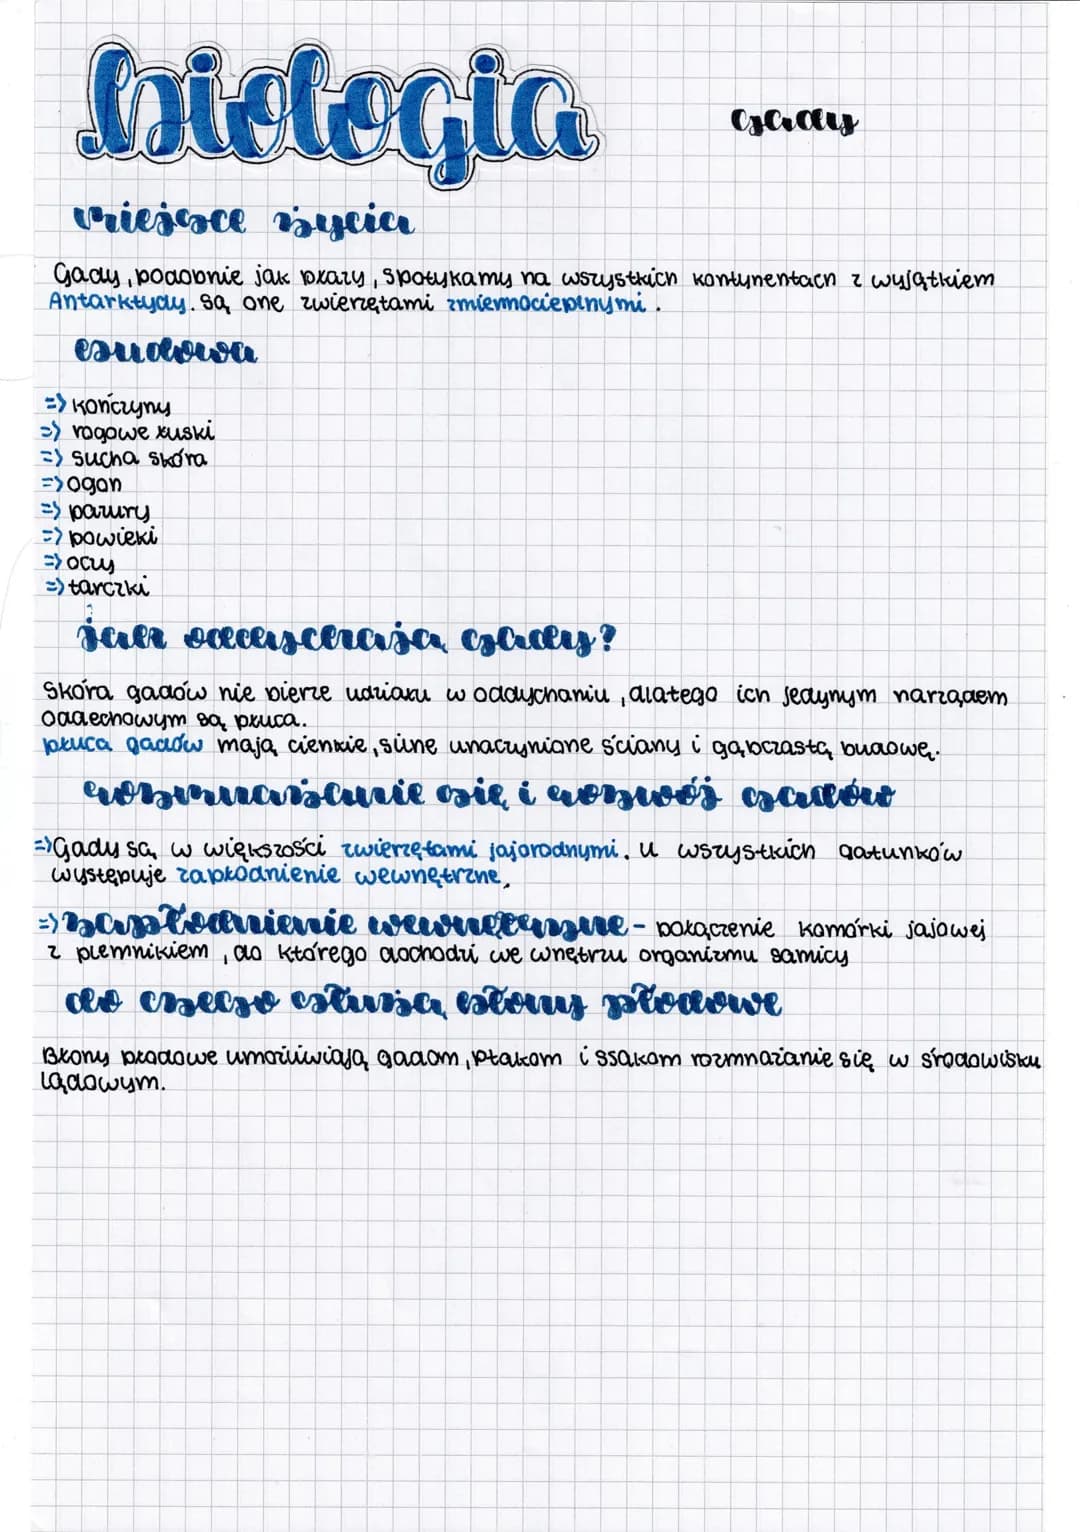 biologia
gady
miejsce życia
Gady, podobnie jak płazy, spotykamy na wszystkich kontynentach z wyjątkiem
Antarktydy. Są one zwierzętami zmiennocieplnymi.
budowa
=> kończyny
=> rogowe łuski
=> sucha skóra
=> ogon
=> pazury
=> powieki
=> oczy
=> tarczki
jak oddychają gady?
Skóra gadów nie bierze udziału w oddychaniu, dlatego ich jedynym narządem
oddechowym są płuca.
płuca gadów mają cienkie, silne unaczynione ściany i gąbczastą budowę.
rozmnażanie się i rozwój gadów
=> Gady są w większości zwierzętami jajorodnymi. U wszystkich gatunków
występuje zapłodnienie wewnętrzne.
=> zapłodnienie wewnętrzne - połączenie komórki jajowej
z plemnikiem, do którego dochodzi we wnętrzu organizmu samicy
do czego służą błony płodowe
Błony płodowe umożliwiają gadom, ptakom i ssakom rozmnażanie się w środowisku
lądowym.